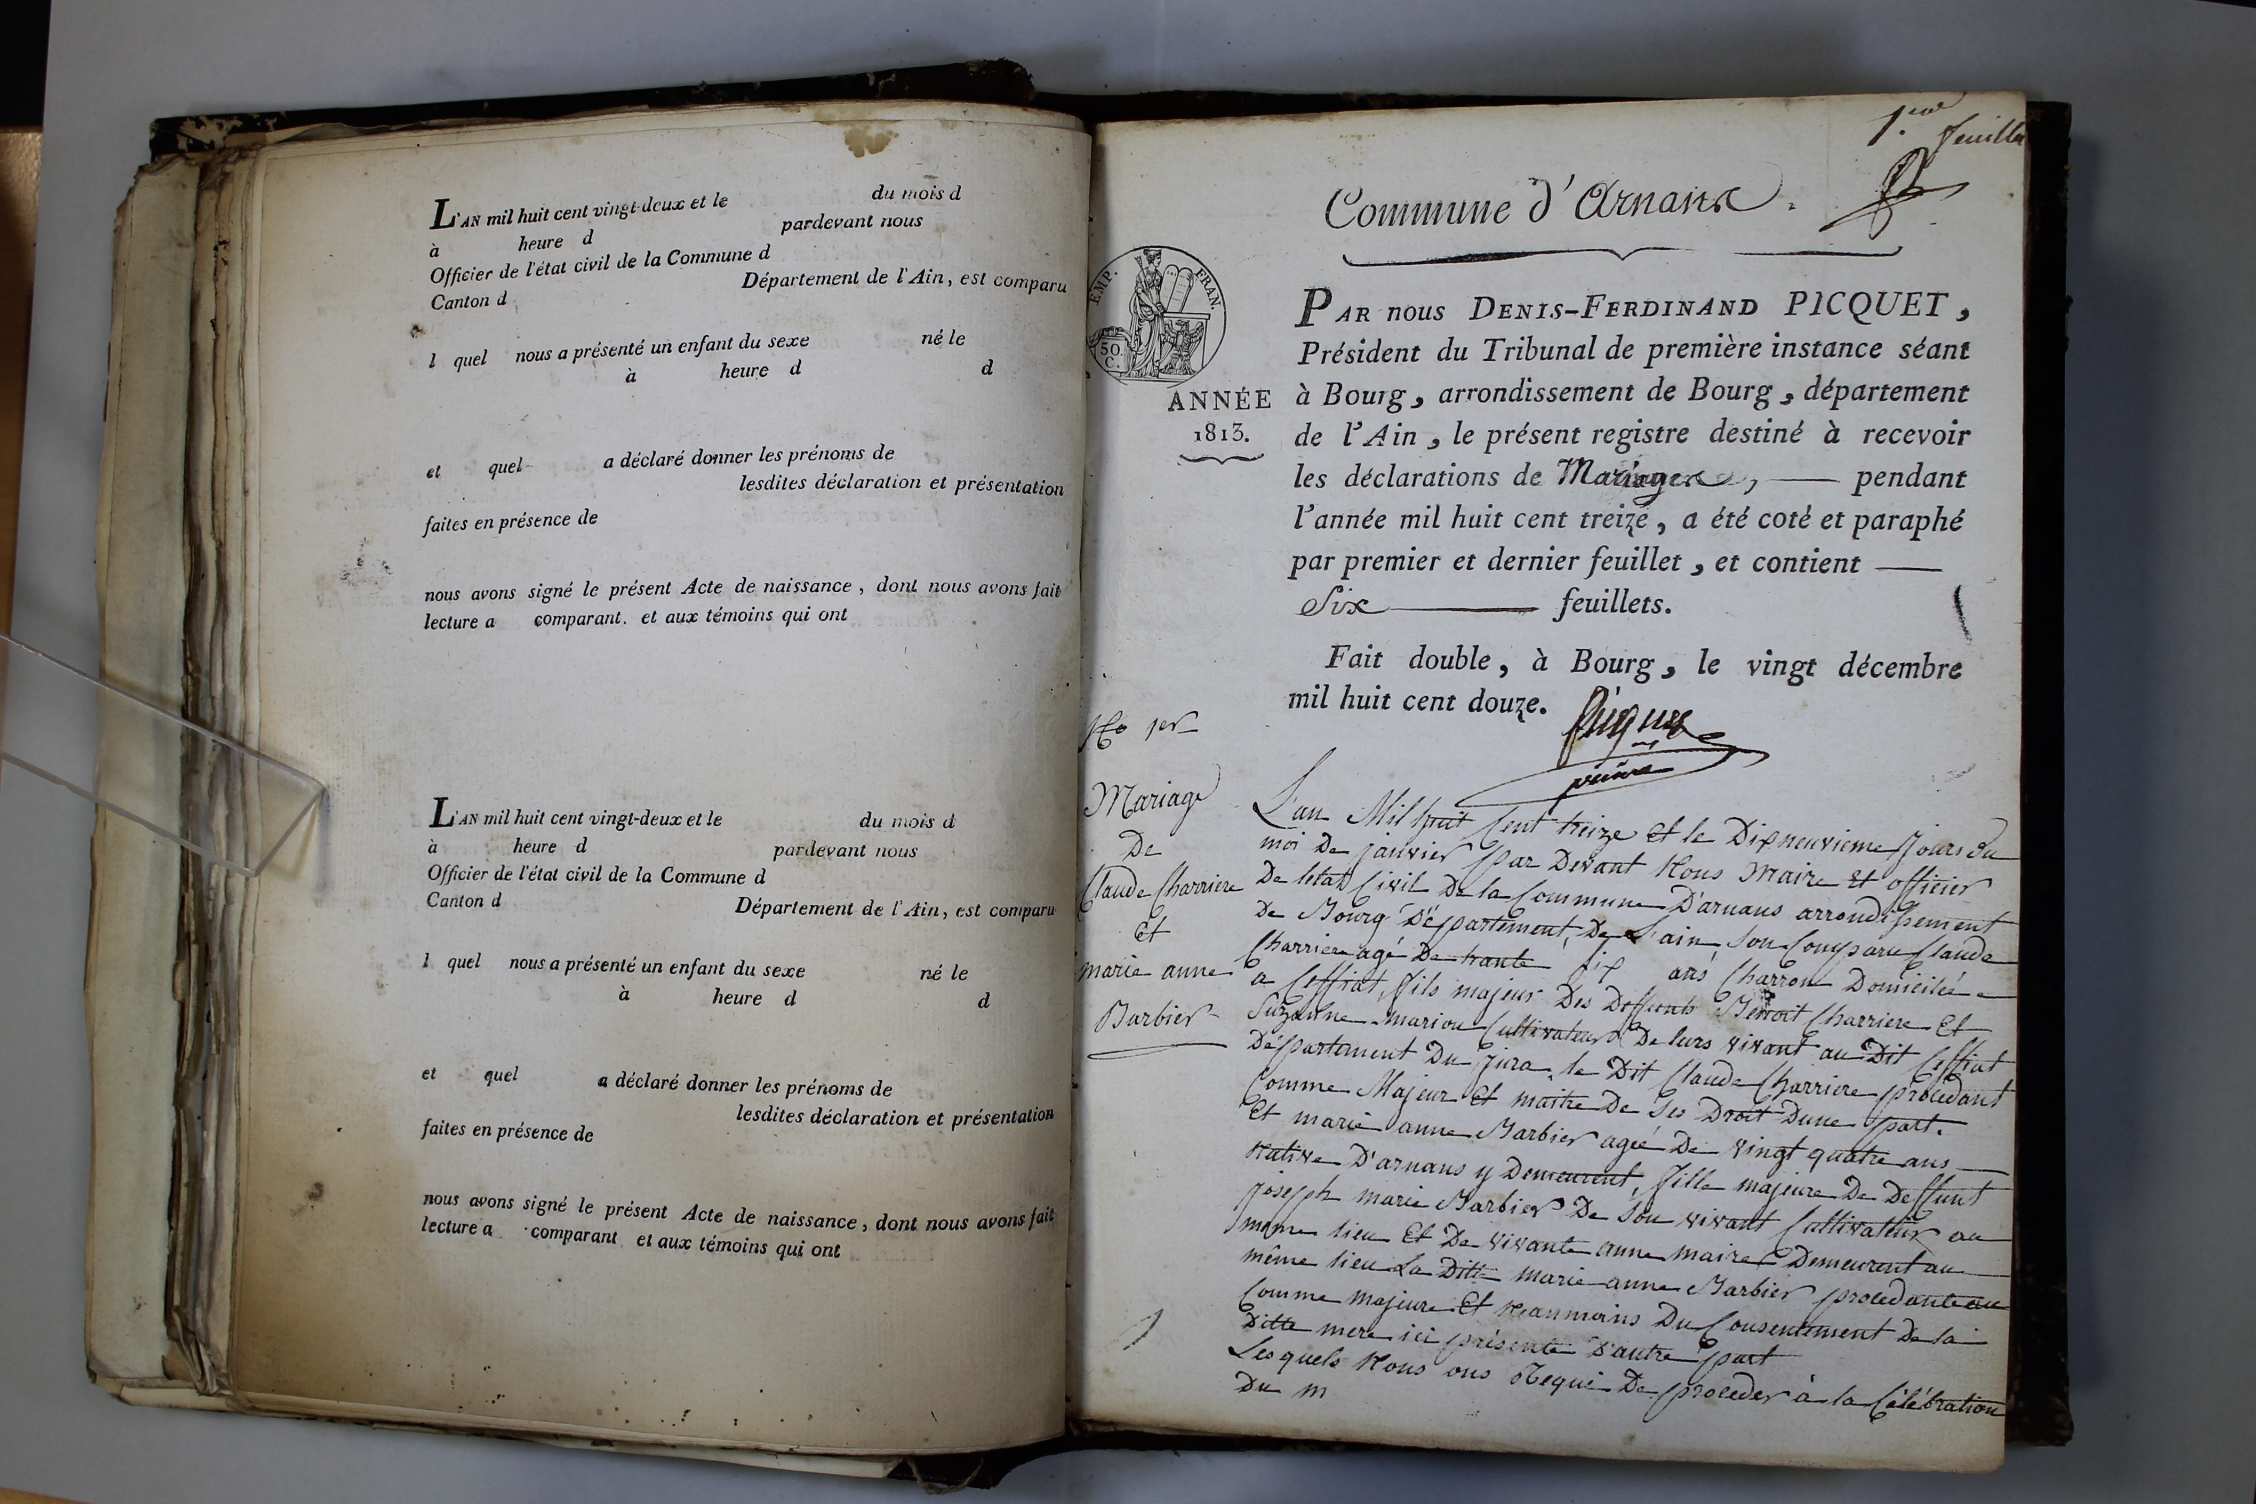 L'AN mil huit cent vingt-deux et le du mois d
à heure d pardevant nous
Officier de l'état civil de la Commune d
Canton d Département de l'Ain, est comparu
l quel nous a présenté un enfant du sexe né le
à heure d d
et quel a déclaré donner les prénoms de
lesdites déclaration et présentation
faites en présence de
nous avons signé le présent Acte de naissance, dont nous avons fait
lecture a comparant et aux témoins qui ont
L'AN mil huit cent vingt-deux et le du mois d
à heure d pardevant nous
Officier de l'état civil de la Commune d
Canton d Département de l'Ain, est comparu
l quel nous a présenté un enfant du sexe né le
à heure d d
et quel a déclaré donner les prénoms de
lesdites déclaration et présentation
faites en présence de
nous avons signé le présent Acte de naissance, dont nous avons fait
lecture a comparant et aux témoins qui ont
1.er feuillet
Commune d'Arnans.
EMP. FRAN.
50.
C.
ANNÉE
1813.
PAR nous DENIS-FERDINAND PICQUET,
Président du Tribunal de première instance séant
à Bourg, arrondissement de Bourg, département
de l'Ain, le présent registre destiné à recevoir
les déclarations de Mariages, pendant
l'année mil huit cent treize, a été coté et paraphé
par premier et dernier feuillet, et contient
Six feuillets.
Fait double, à Bourg, le vingt décembre
mil huit cent douze.
Picquet
No 1er
Mariage
De
Claude Charriere
Et
marie anne
Barbier
L'an Mil huit Cent treize et le Dixneuvieme jours du
moi De janvier par Devant Nous Maire Et officier
De letat Civil De la Commune D'arnans arrondissement
De Bourg Département De L'ain Son Comparu Claude
Charriere agé De trante six ans Charron Domicilié
a Ceffiat, fils majeur Des Deffunts Benoit Charriere Et
Suzanne mariou Cultivateurs De leurs vivant au Dit Ceffiat
Département Du jura, le Dit Claude Charriere procedant
Comme Majeur Et maitre De Ses Droit Dune part.
Et marie anne Barbier ageé De vingt quatre ans
Native D'arnans y Demeurent, fille majeure De Deffunt
joseph marie Barbier De Son vivant Cultivateur au
même lieu Et De vivante anne maire Demeurent au
même lieu La Ditte marie anne Barbier procedante
Comme majeure Et Neanmoins Du Consentement De la
Ditte mere ici présente D'autre part
Les quels Nous ons Requi De proceder à la Célébration
Du m